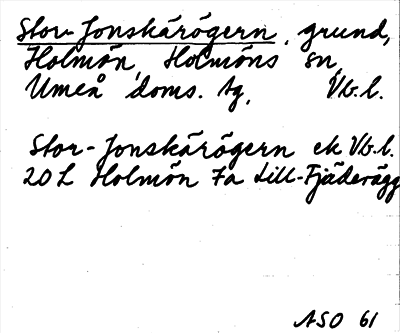 Stor-Jonskärögern, grund,
Holmön, Holmöns sn,
Umeå doms. tg, Vb.l.
Stor-Jonskärögern ek Vb.l.
20 L Holmön 7a Lill-Fjäderägg
ASO 61